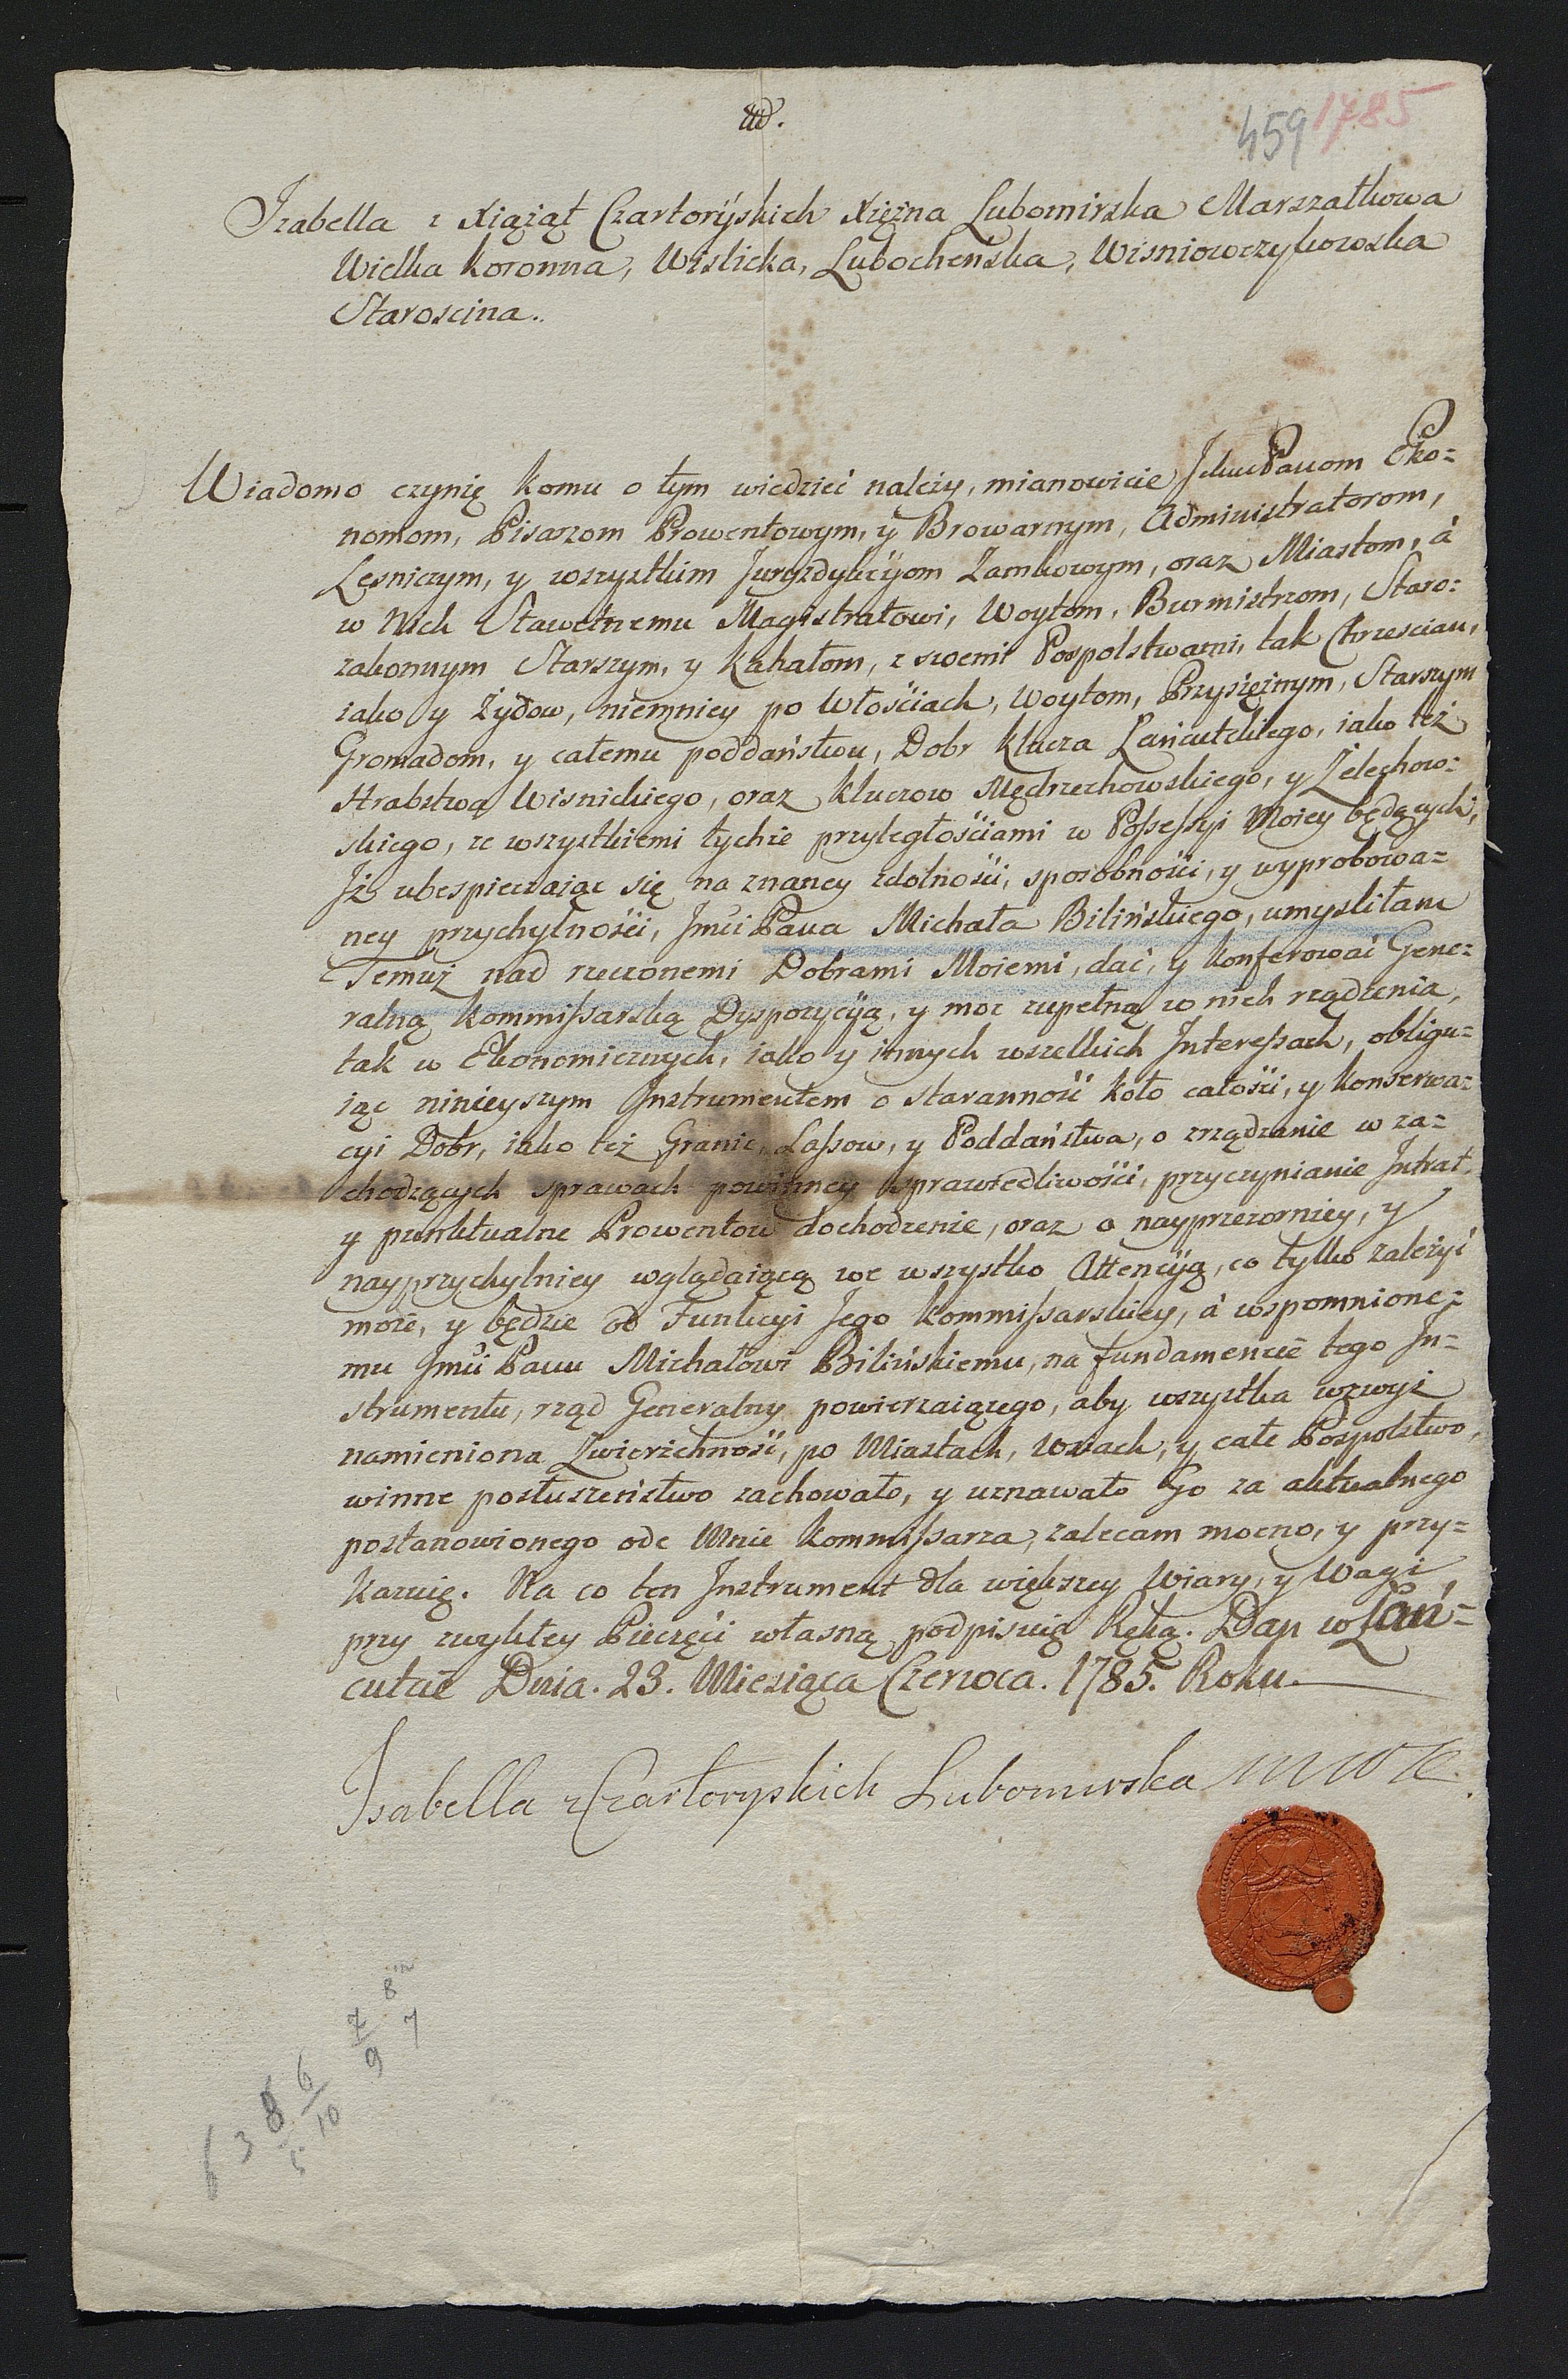 459 1785
Izabella z Xiążąt Czartoryskich Xiężna Lubomirska Marszałkowa
Wielka Koronna, Wislicka, Lubocheńska, Wisniowczykowska
Staroscina.
Wiadomo czynię komu o tym wiedzieć należy, mianowicie Ichmć Panom Eko=
nomom, Pisarzom Prowentowym, y Browarnym, Administratorom,
Leśniczym, y wszystkim Juryzdykcyom Zamkowym, oraz Miastom, à
w Nich Sławetnemu Magistratowi, Woytom, Burmistrzom, Staro=
zakonnym Starszym, y Kahałom, z swemi Pospolstwami, tak Chrzescian,
iako y Żydow, niemniey po Włościach, Woytom, Przysiężnym, Starszym
Gromadom, y całemu poddaństwu, Dobr Klucza Łańcutskiego, iako też
Hrabstwa Wisnickiego, oraz Kluczow Mędrzechowskiego, y Żelechow=
skiego, ze wszystkiemi tychże przyległościami w Possessyi Moiey będących,
Iż ubespieczaiąc się na znaney zdolności, sposobności, y wyprobowa=
ney przychylności, Jmći Pana Michała Bilińskiego, umysliłam
Temuż nad rzeczonemi Dobrami Moiemi, dać, y konferować Gene=
ralną Kommissarską Dyspozycyą, y moc zupełną w nich rządzenia,
tak w Ekonomicznych, iako y innych wszelkich Interessach, obligu=
iąc ninieyszym Instrumentem o staranność koło całości, y konserwa=
cyi Dobr, iako też Granic, Lassow, y Poddaństwa, o zrządzanie w za=
chodzących sprawach powinney sprawiedliwości, przyczynianie Intrat,
y punktualne Prowentow dochodzenie, oraz o nayprzezorniey, y
nayprzychylniey wglądaiącą we wszystko Attencyą, co tylko zależyć
może, y będzie od Funkcyi Jego Kommissarskiey, à wspomnione=
mu Jmći Panu Michałowi Bilińskiemu, na fundamencie tego In=
strumentu, rząd Generalny powierzaiącego, aby wszystka wzwyż
namieniona Zwierzchność, po Miastach, Wsiach, y całe Pospolstwo,
winne posłuszeństwo zachowało, y uznawało Go za aktualnego
postanowionego ode Mnie Kommissarza, zalecam mocno, y przy=
kazuię. Na co ten Instrument dla większey Wiary, y Wagi
przy zwykłey Pieczęci własną podpisuię Ręką. Dan w Łań=
cutcie Dnia. 23. Miesiąca Czerwca. 1785. Roku.
Isabella z Czartoryskich Lubomirska MWK
8
7
9 7
6
3 8 10
5